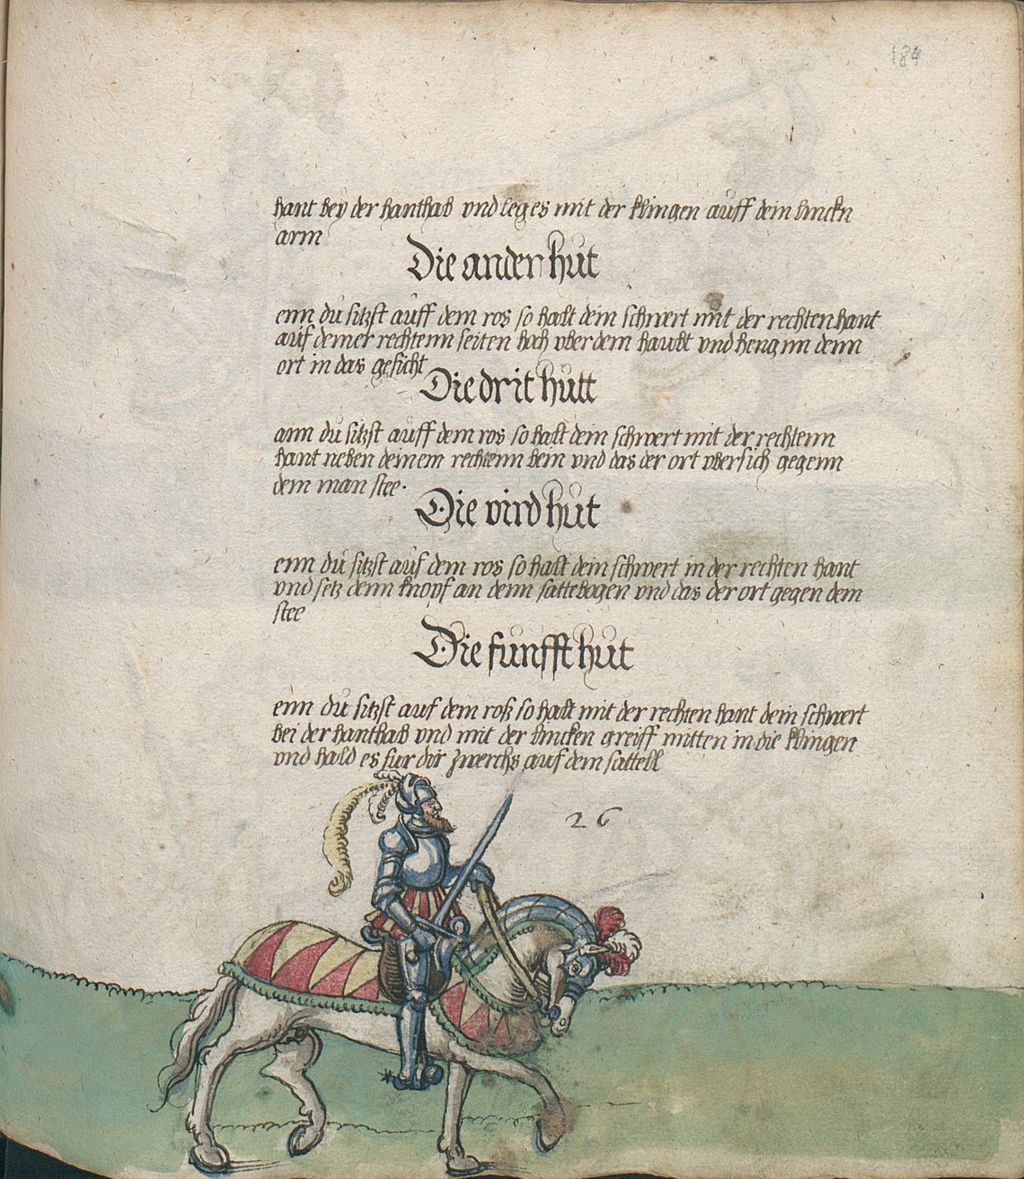 184
hant bey der hanthab vnd leg es mit der klingen auff dein lincken
arm
Die ander hůt
enn dů sitzst aůff dem ros so halt dein schwert mit der rechten hant
auf deiner rechtenn seiten hoch vber dem haubt vnd heng im denn
ort in das gesicht
Die drit hůtt
ann dů sitzst aůff dem ros so halt dein schwert mit der rechtenn
hant neben deinem rechtenn bein vnd das der ort vbersich gegenn
dem man stee.
Die vird hůt
enn dů sitzst auf dem ros so halt dein schwert in der rechten hant
vnd setz denn knopf an denn sattebogen vnd das der ort gegen dem
stee
Die fůnfft hůt
enn dů sitzst auf dem roß so halt mit der rechten hant dein schwert
bei der hanthab vnd mit der lincken greiff mitten in die klingen
vnd hald es fur dir zwerchs auf dem sattell
26